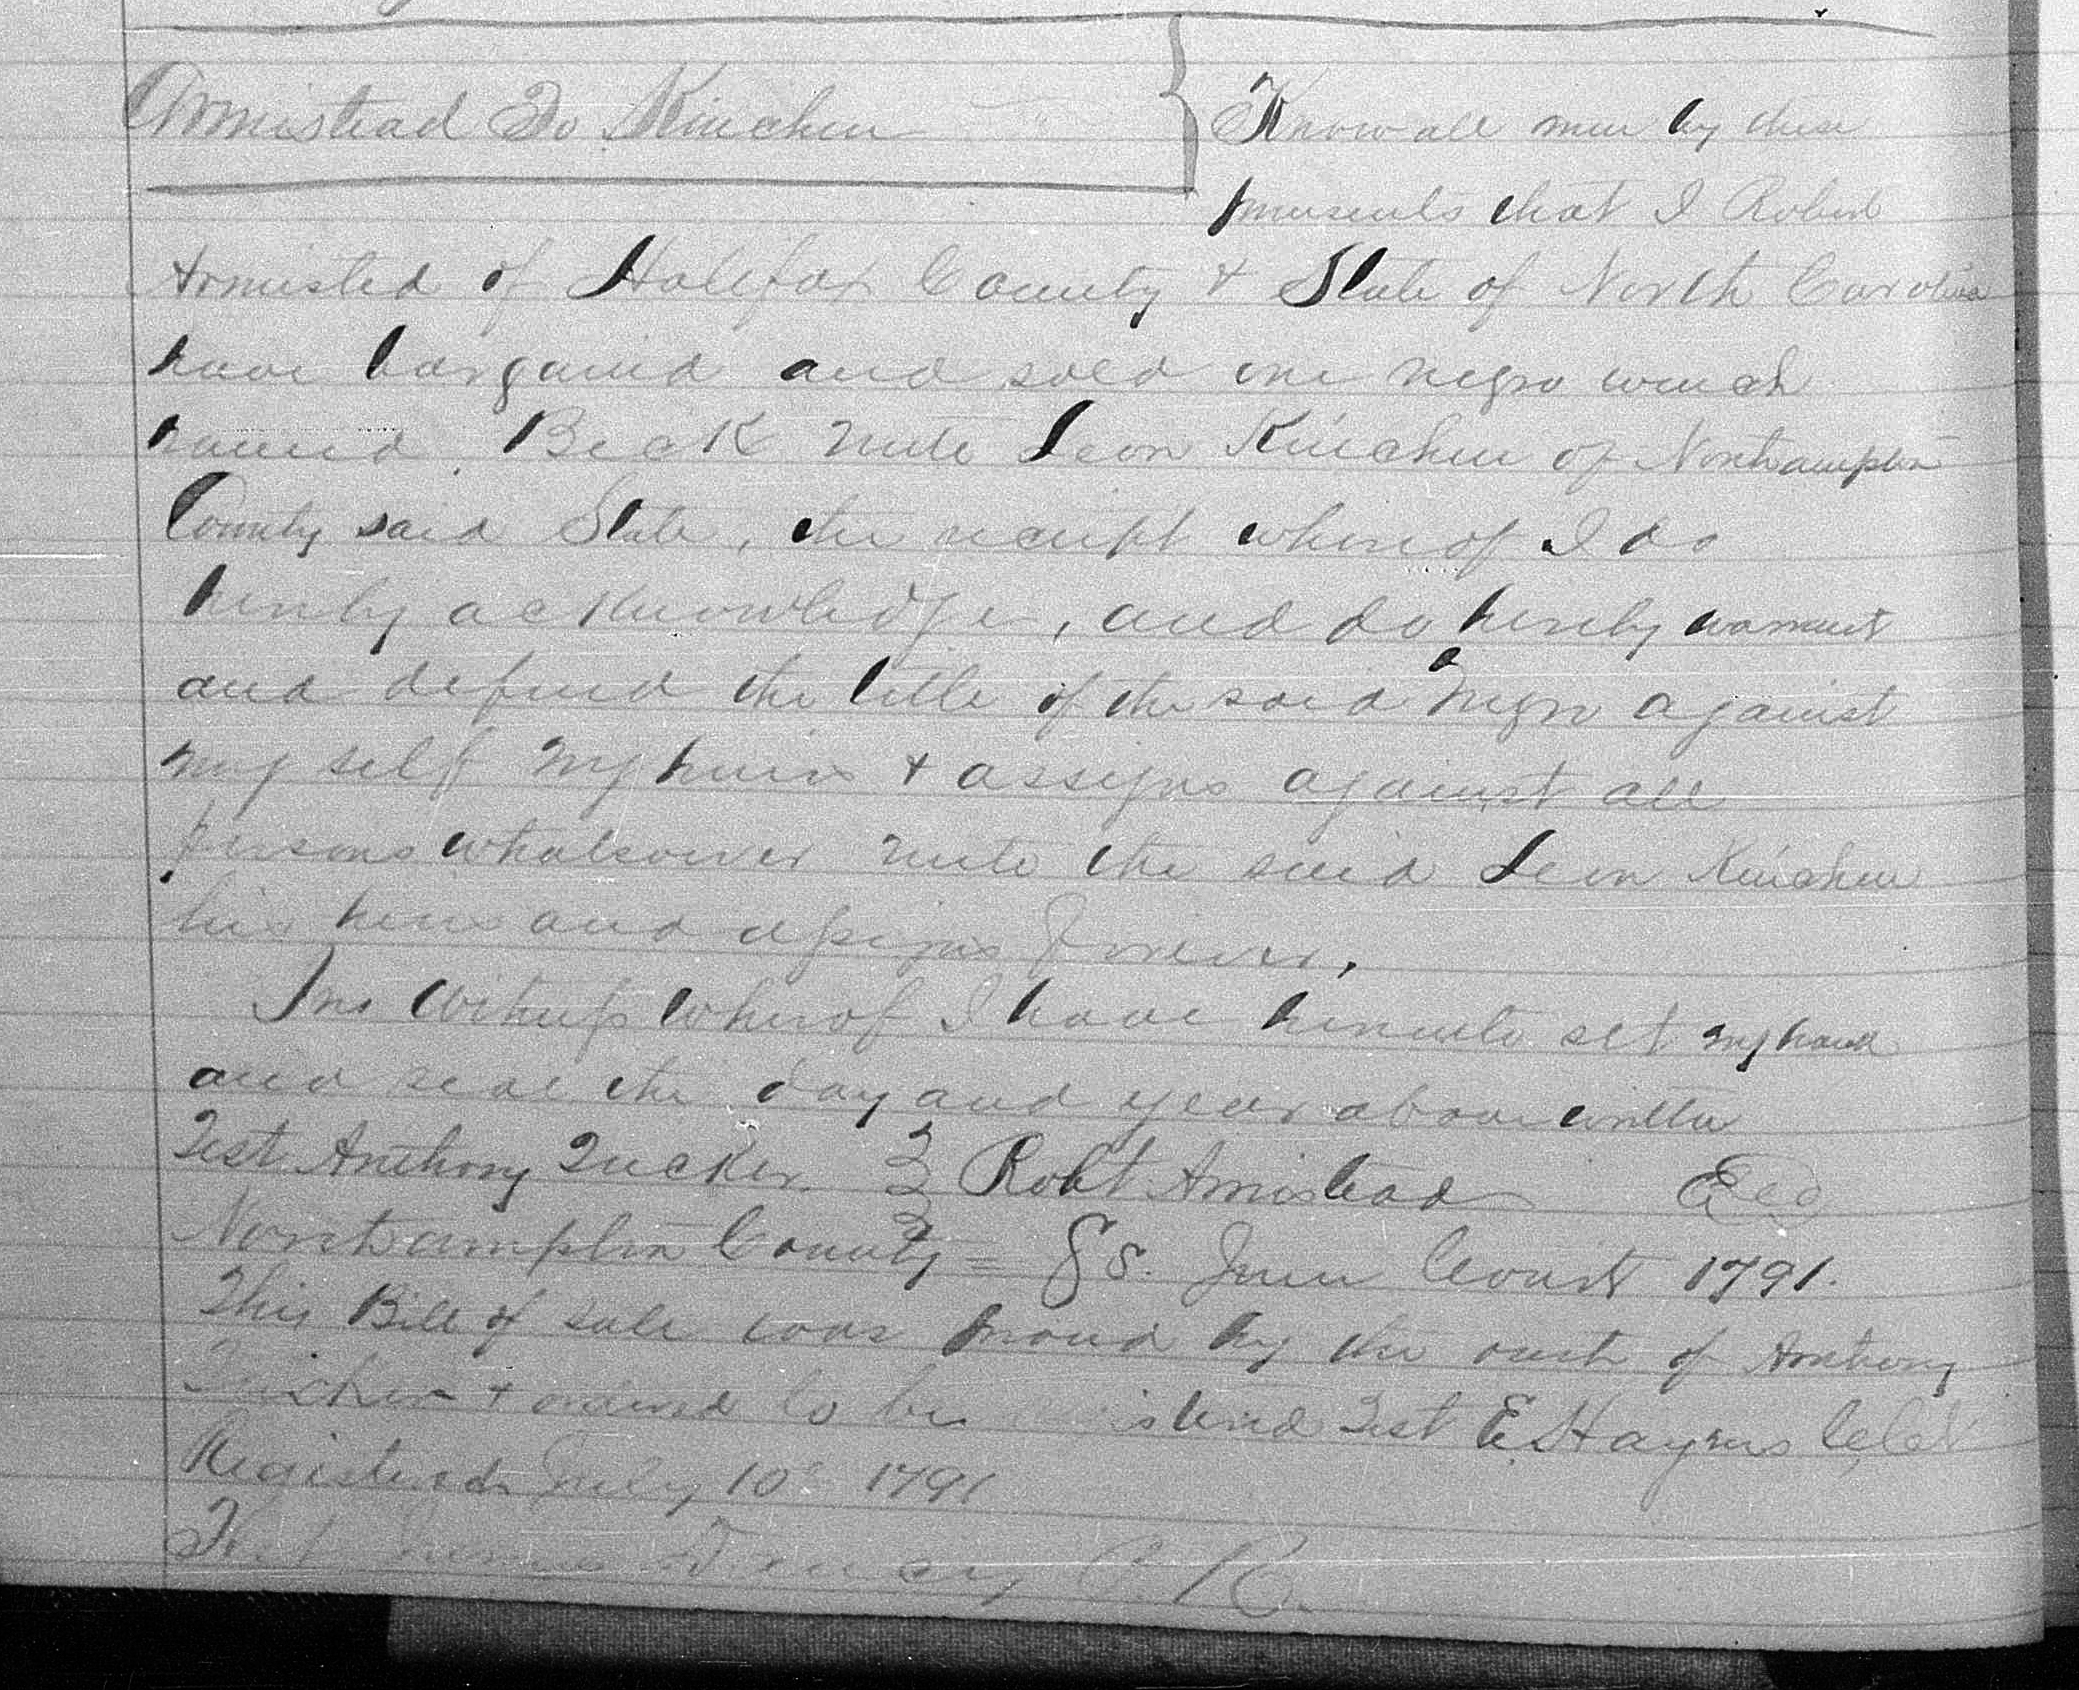 Armistead To Kinchen
Know all men by these
presents that I Robert
Armisted of Halifax County & State of North Carolina
have bargained and sold one negro wench
named Beck unto Kinchen of Northampton
County said State, the receipt whereof I do
hereby acknowledge, and do hereby warrant
and defend the title of the said Negro against
my self my heirs & assigns against all
persons whatsoever unto the said Kinchen
his heirs and assigns forever.
In witness whereof I have hereunto set my hand
and seal the day and year above written
Test Anthony Tucker Robt Armistead
Northampton County = SS. June Court 1791.
This Bill of sale was proved by the oath of Anthony
& ordered to be Test E. Haynes Clk
Registered July 10 1791
Test C. R.